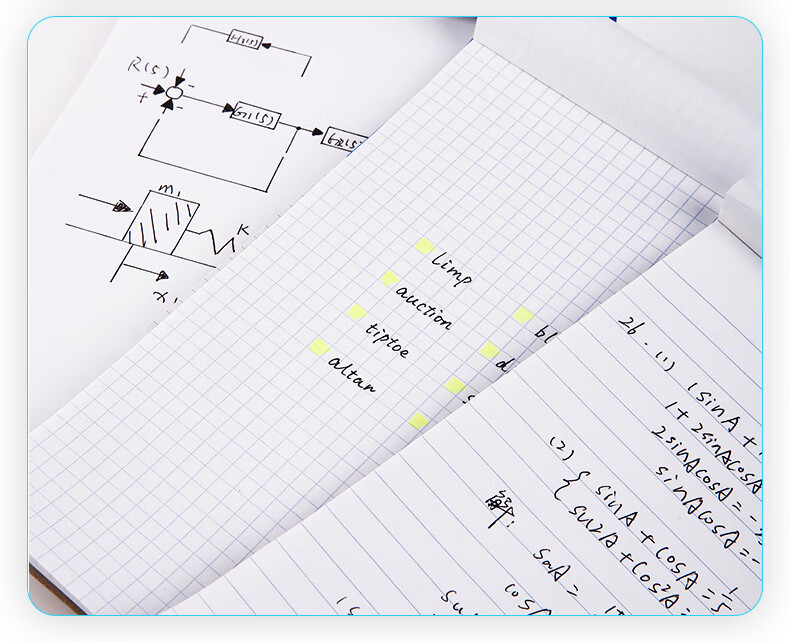 R(s)
+
-
-
G1(s)
m1
K
x1
limp
auction
tiptoe
altar
bl
d
s
26.(1)
(sinA +
1+2sinAcosA
2sinAcosA = -
sinAcosA = -
(2)
{ sinA + cosA = 1/5
sin²A + cos²A =
解:
sinA =
cosA